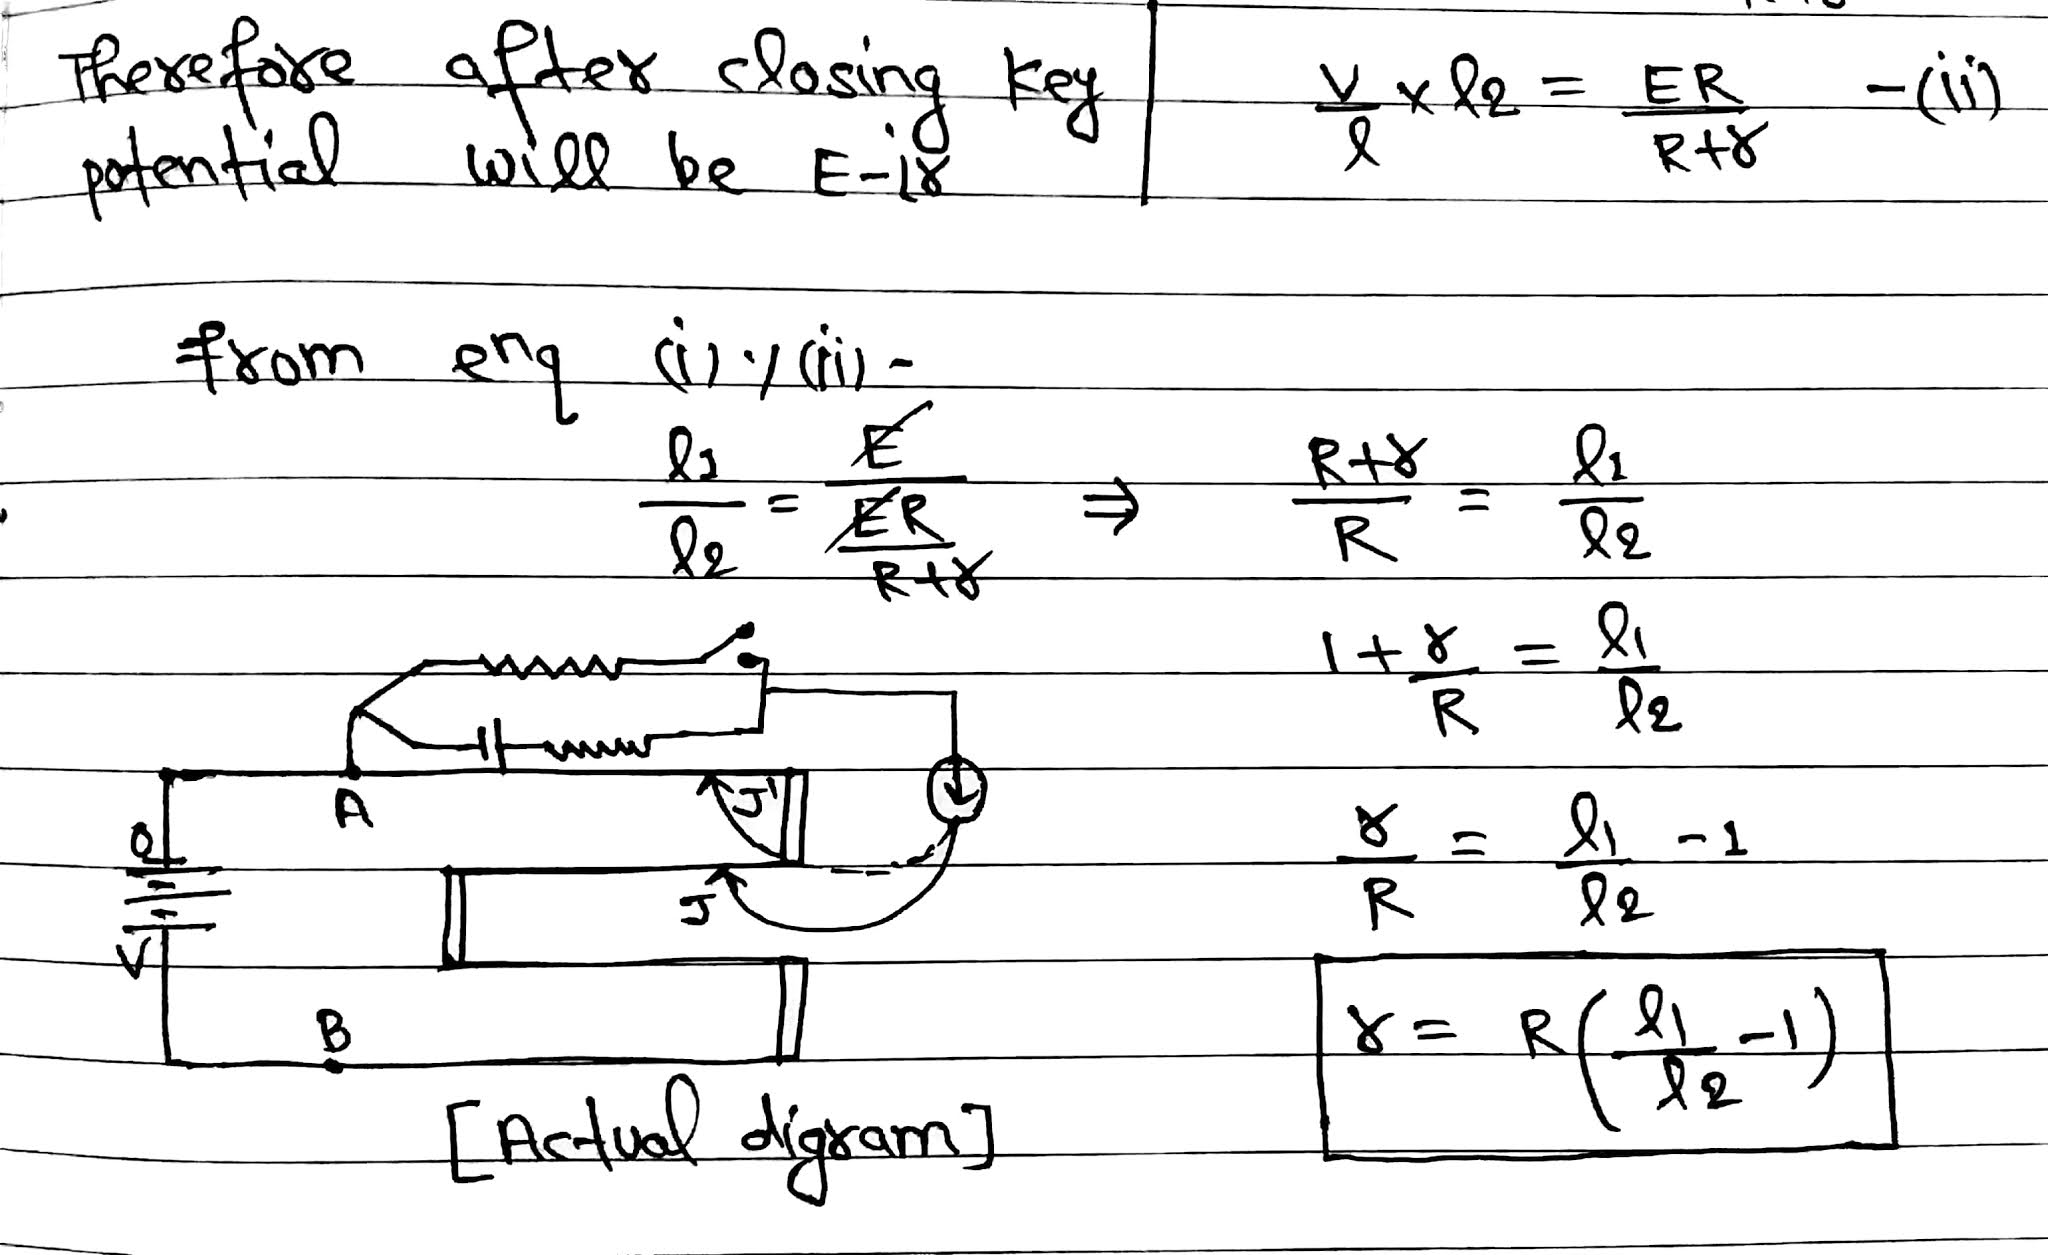 Therefore after closing key
potential will be E-ir
V/l x l2 = ER/R+r -(ii)
from enq (i) y (ii) -
l1/l2 = E/(ER/R+r) ⇒ R+r/R = l1/l2
1 + r/R = l1/l2
r/R = l1/l2 - 1
r = R(l1/l2 - 1)
A
J'
J
V
B
[Actual digram]